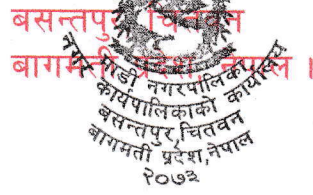 बसन्तपुर, चितवन
बागमती प्रदेश, नेपाल ।
माडी नगरपालिका
नगर कार्यपालिकाको कार्यालय
बसन्तपुर,चितवन
बागमती प्रदेश,नेपाल
२०७३